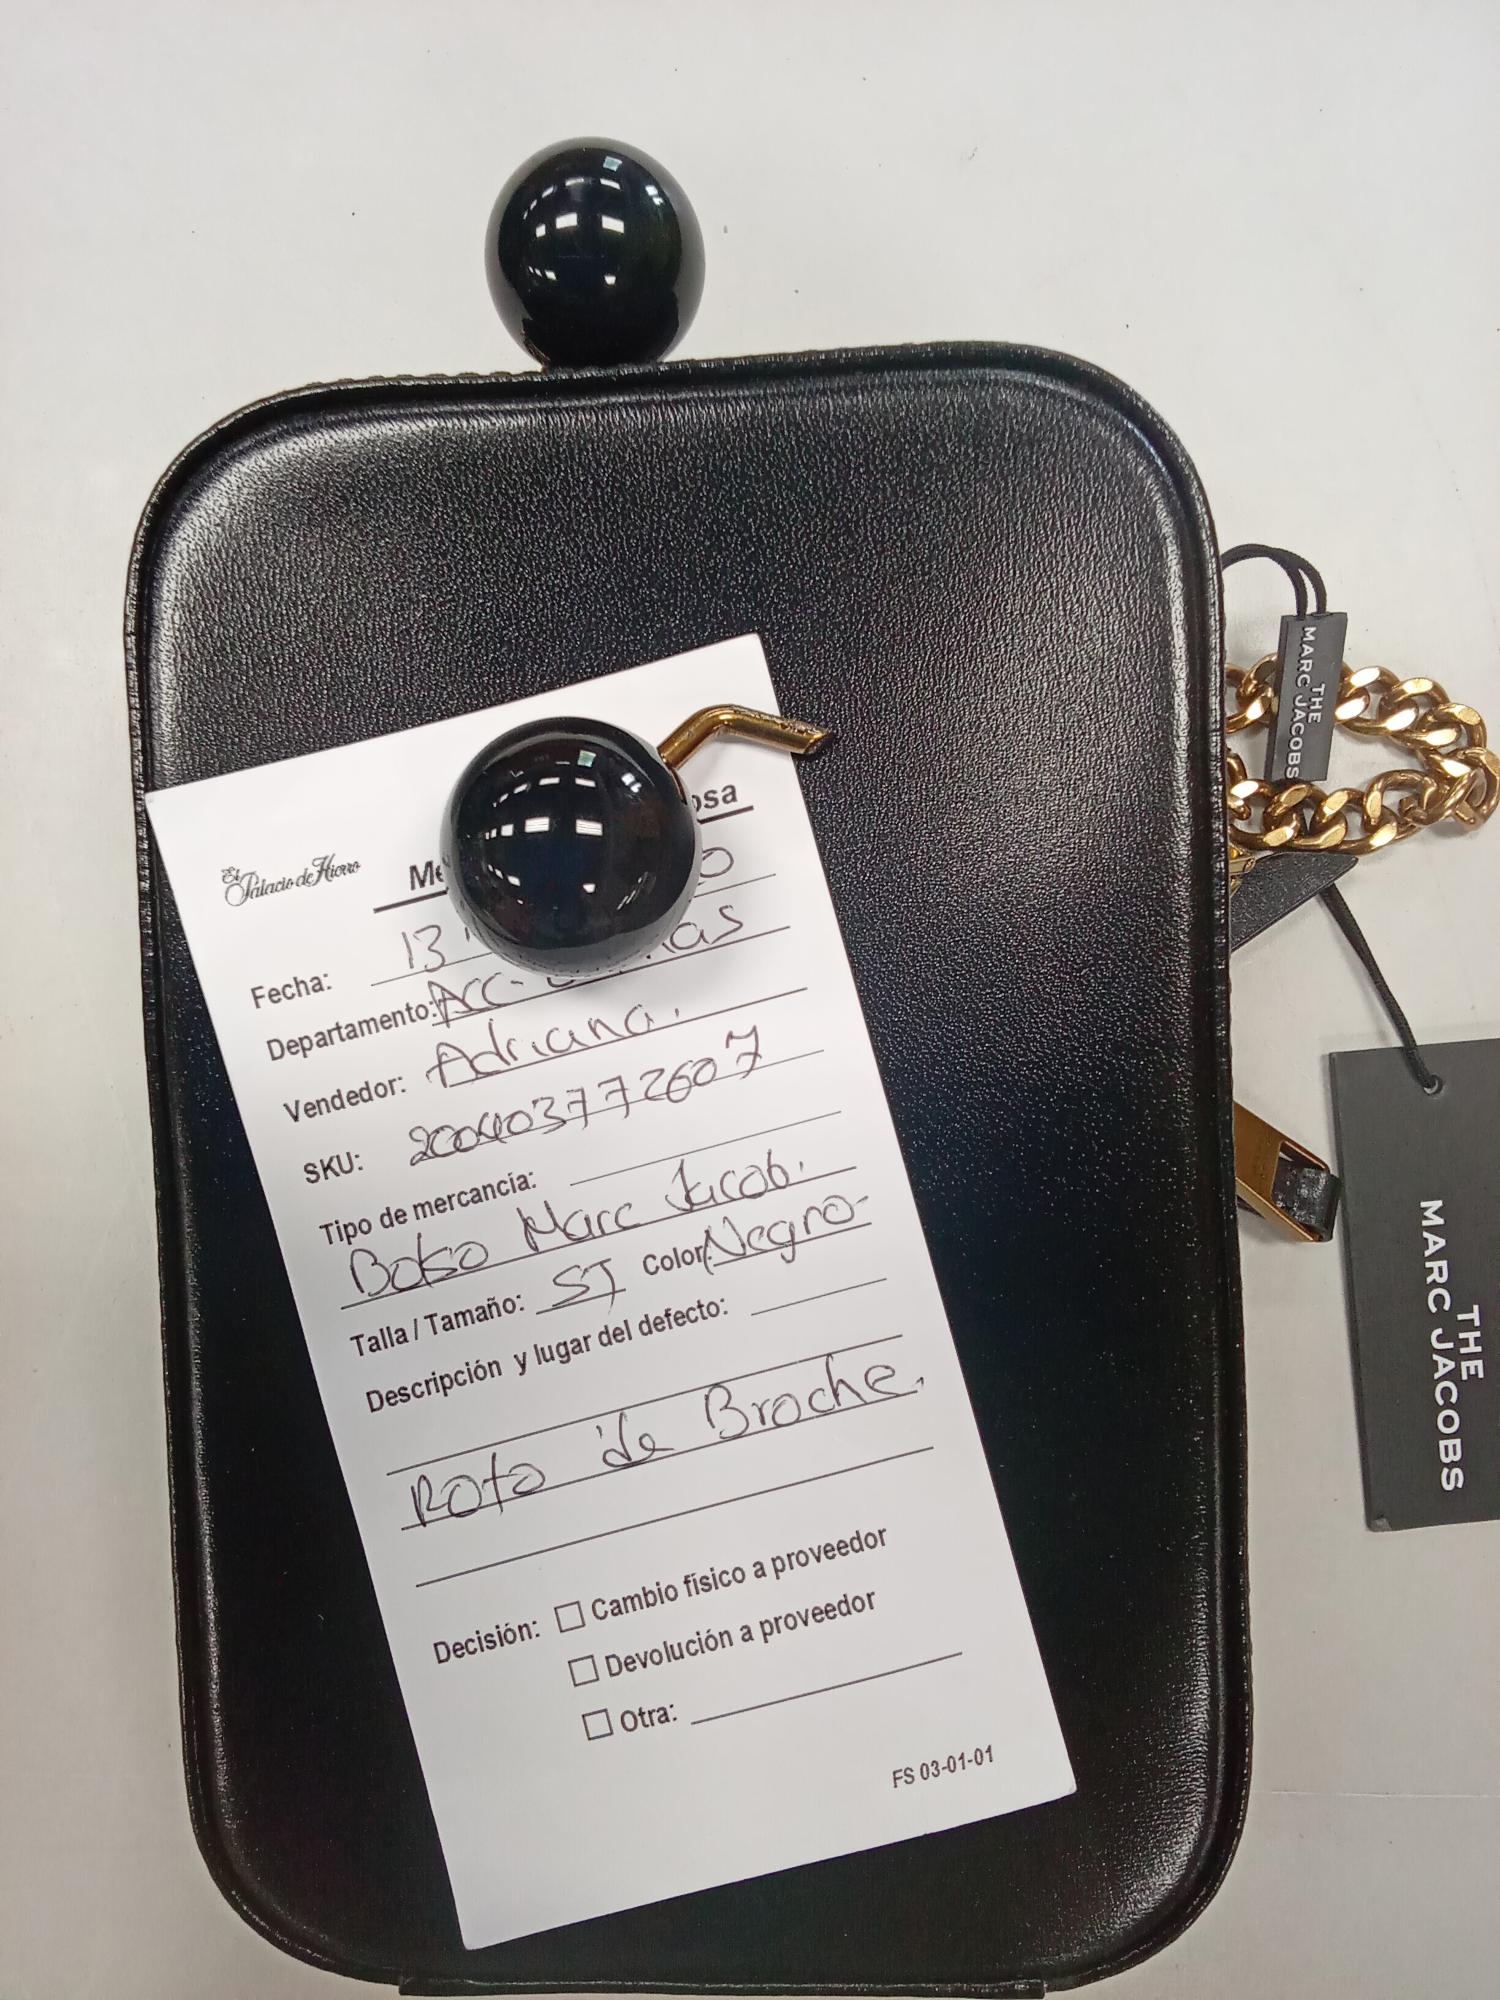 THE
MARC JACOBS
El
Palacio de Hierro
Fecha: 13
Departamento: Acc.
Vendedor: Adriana.
SKU: 200403772607
Tipo de mercancía:
Bolso Marc Jacob.
Talla / Tamaño: ST Color: Negro
Descripción y lugar del defecto:
Roto de Broche.
Decisión: Cambio físico a proveedor
Devolución a proveedor
Otra:
FS 03-01-01
THE
MARC JACOBS